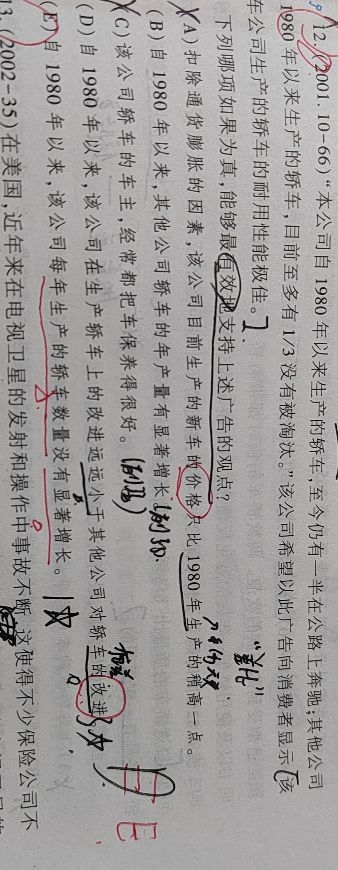 12.(2001.10-66)“本公司自 1980 年以来生产的轿车,至今仍有一半在公路上奔驰;其他公司
1980 年以来生产的轿车,目前至多有 1/3 没有被淘汰。”该公司希望以此广告向消费者显示,该
车公司生产的轿车的耐用性能极佳。
下列哪项如果为真,能够最有效地支持上述广告的观点?
(A)扣除通货膨胀的因素,该公司目前生产的新车的价格只比 1980 年生产的稍高一点。
(B)自 1980 年以来,其他公司轿车的年产量有显著增长。
(C)该公司轿车的车主,经常都把车保养得很好。
(D)自 1980 年以来,该公司在生产轿车上的改进远远小于其他公司对轿车的改进。
(E)自 1980 年以来,该公司每年生产的轿车数量没有显著增长。
E
13.(2002-35)在美国,近年来在电视卫星的发射和操作中事故不断,这使得不少保险公司不